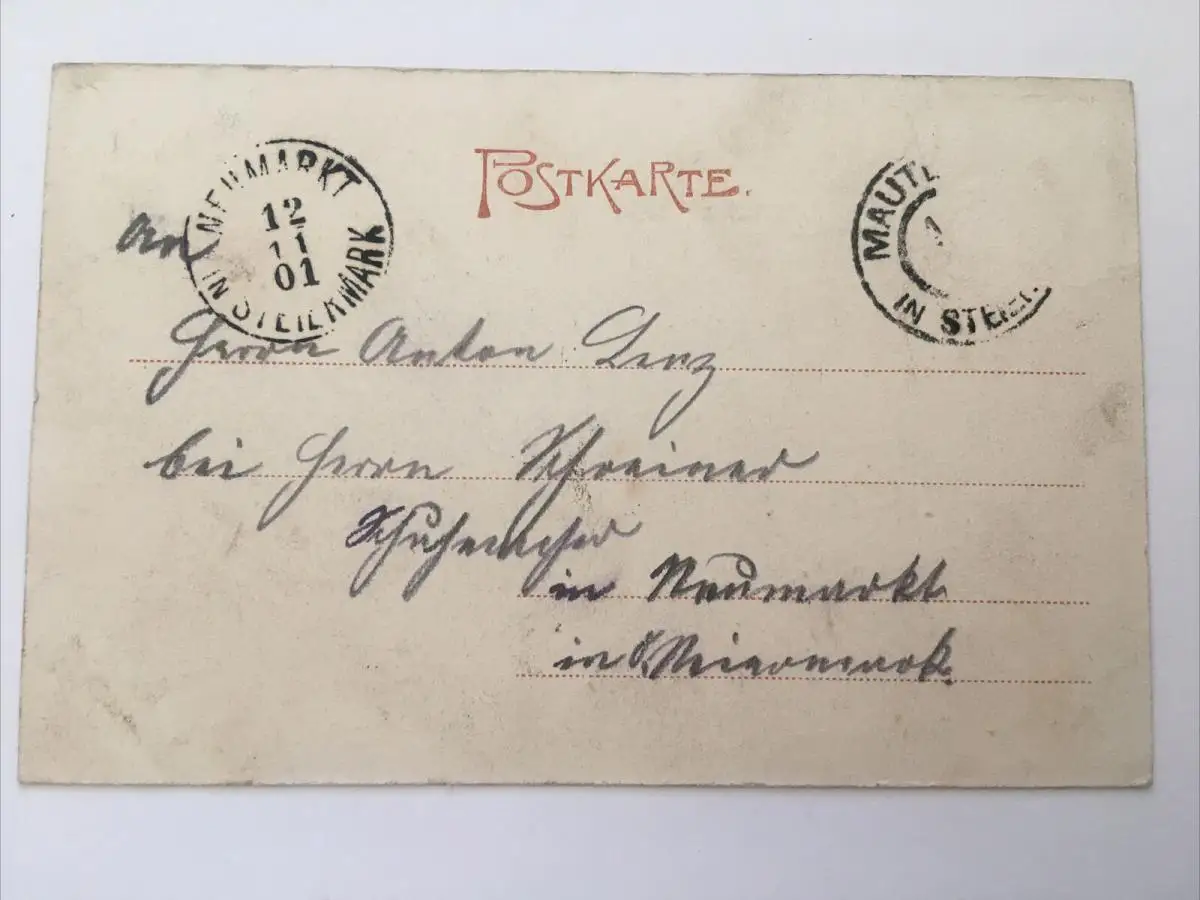 POSTKARTE.
NEUMARKT
IN STEIERMARK
12
11
01
MAUT
IN STEIER
An
Herrn Anton Lenz
bei Herrn Schreiner
Schuhmacher
in Neumarkt
in Steiermark.